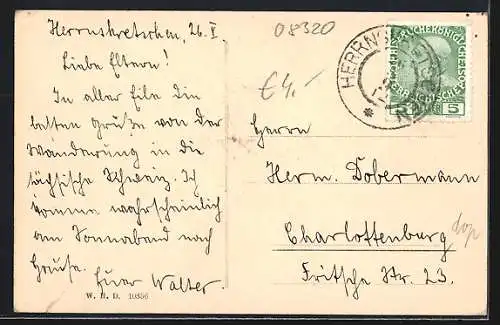 Herrnskretschen, 26. V.
Liebe Eltern!
In aller Eile die
besten Grüße von der
Wanderung in die
sächsische Schweiz. Ich
komme wahrscheinlich
am Sonnabend nach
Hause. Euer Walter.
W. H. D. 10356
08320
€4,-
HERRNS
5
Herrn
Herm. Dobermann
Charlottenburg
Fritsche Str. 23.